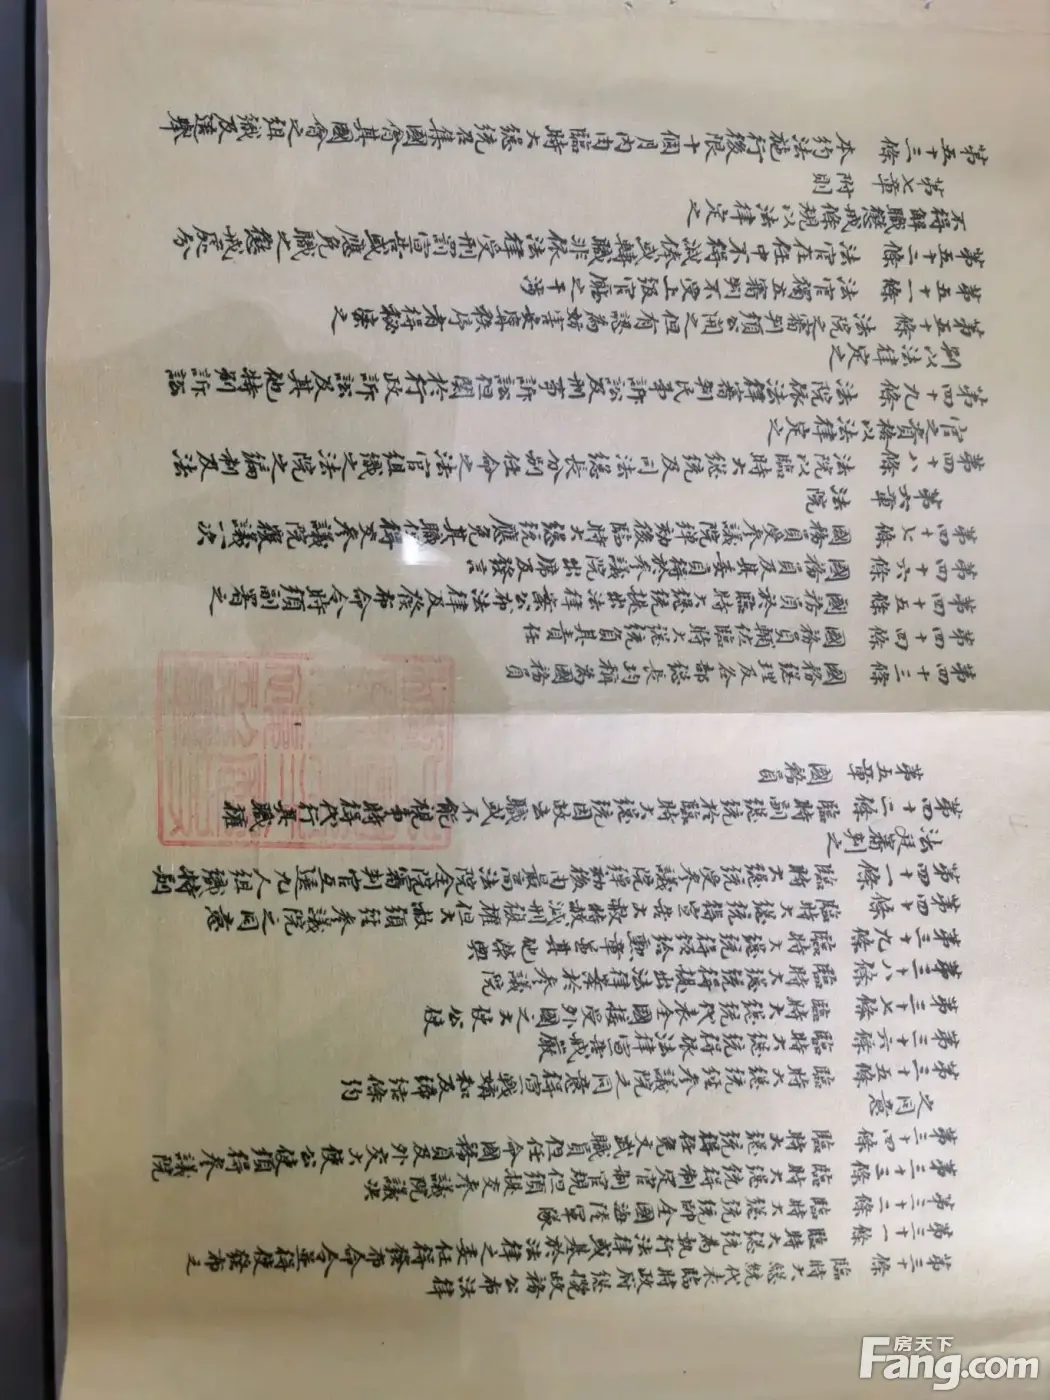 第三十條 臨時大總統代表臨時政府總攬政務公布法律
第三十一條 臨時大總統為執行法律或基於法律之委任得發布命令並得使發布之
第三十二條 臨時大總統統帥全國海陸軍隊
第三十三條 臨時大總統得制定官制官規但須提交參議院議決
第三十四條 臨時大總統得任免文武職員但任命國務員及外交大使公使須得參議院
之同意
第三十五條 臨時大總統經參議院之同意得宣戰媾和及締結條約
第三十六條 臨時大總統得依法律宣告戒嚴
第三十七條 臨時大總統代表全國接受外國之大使公使
第三十八條 臨時大總統得提出法律案於參議院
第三十九條 臨時大總統得頒給勳章並其他榮典
第四十條 臨時大總統得宣告大赦特赦減刑復權但大赦須經參議院之同意
第四十一條 臨時大總統受參議院彈劾後由最高法院全院審判官互選九人組織特別
法庭審判之
第四十二條 臨時副總統於臨時大總統因故去職或不能視事時得代行其職權
第五章 國務員
第四十三條 國務總理及各部總長均稱為國務員
第四十四條 國務員輔佐臨時大總統負其責任
第四十五條 國務員於臨時大總統提出法律案公布法律及發布命令時須副署之
第四十六條 國務員及其委員得於參議院出席及發言
第四十七條 國務員受參議院彈劾後臨時大總統應免其職但得交參議院覆議一次
第六章 法院
第四十八條 法院以臨時大總統及司法總長分別任命之法官組織之法院之編制及法
官之資格以法律定之
第四十九條 法院依法律審判民事訴訟及刑事訴訟但關於行政訴訟及其他特別訴訟
別以法律定之
第五十條 法院之審判須公開之但有認為妨害安寧秩序者得秘密之
第五十一條 法官獨立審判不受上級官廳之干涉
第五十二條 法官在任中不得減俸或轉職非依法律受刑罰宣告或應免職之懲戒處分
不得解職懲戒條規以法律定之
第七章 附則
第五十三條 本約法施行後限十個月內由臨時大總統召集國會其國會之組織及選舉
房天下
Fang.com